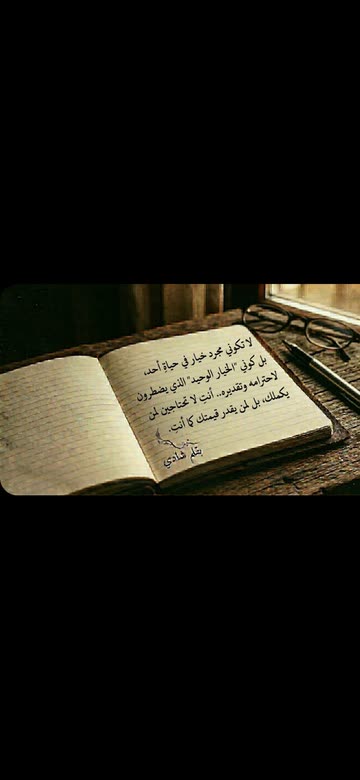 لا تكوني مجرد خيار في حياةِ أحد،
بل كوني "الخيار الوحيد" الذي يضطرون
لاحترامه وتقديره.. أنتِ لا تحتاجين لمن
يكملك، بل لمن يقدر قيمتك كما أنتِ.
بقلم شادي